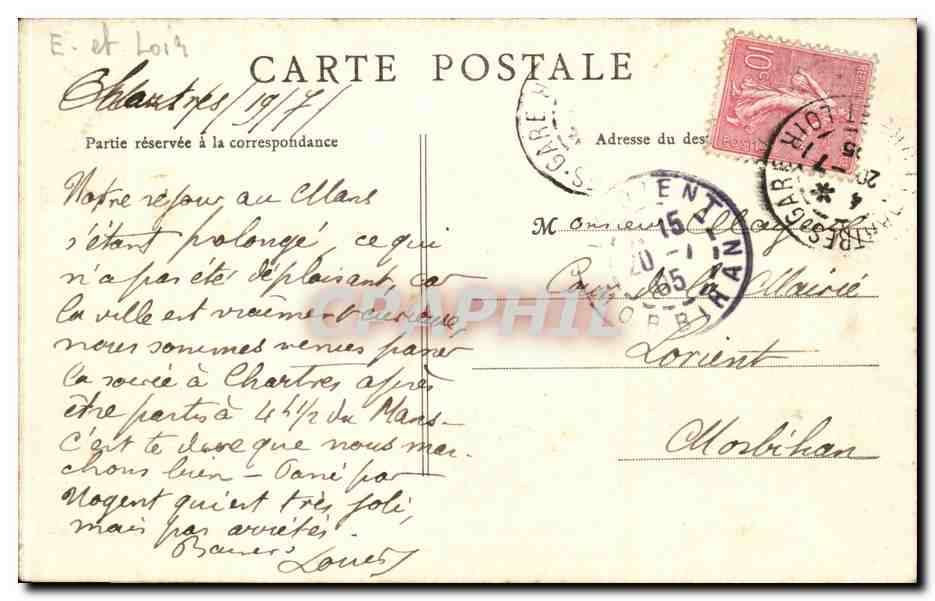 E. et Loir
CARTE POSTALE
Chartres 19/7/
Partie réservée à la correspondance
Adresse du des
10c
Notre séjour au Mans
s'étant prolongé, ce qui
n'a pas été déplaisant, car
la ville est vraiment curieuse,
nous sommes venus passer
la soirée à Chartres après
être partis à 4 h 1/2 du Mans -
c'est te dire que nous mar-
chons bien - Passé par
Nogent qui est très joli,
mais pas arrêtés.
Baisers
Louis
Monsieur
Cours de la Mairie
Lorient
Morbihan
S-GARE
GARE
LOIR
15
20 - 7
05
MORBIHAN
CPAPHIL